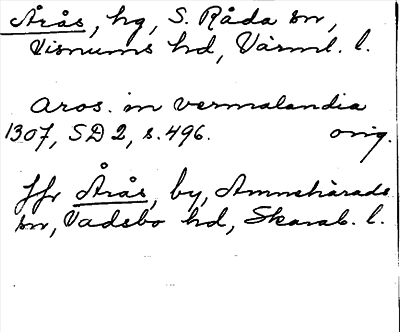 Årås, hg, S. Råda sn,
Visnums hd, Värml. l.
Aros. in vermalandia
1307, SD 2, s. 496. orig.
Jfr Årås, by, Amnehärads
sn, Vadsbo hd, Skarab. l.